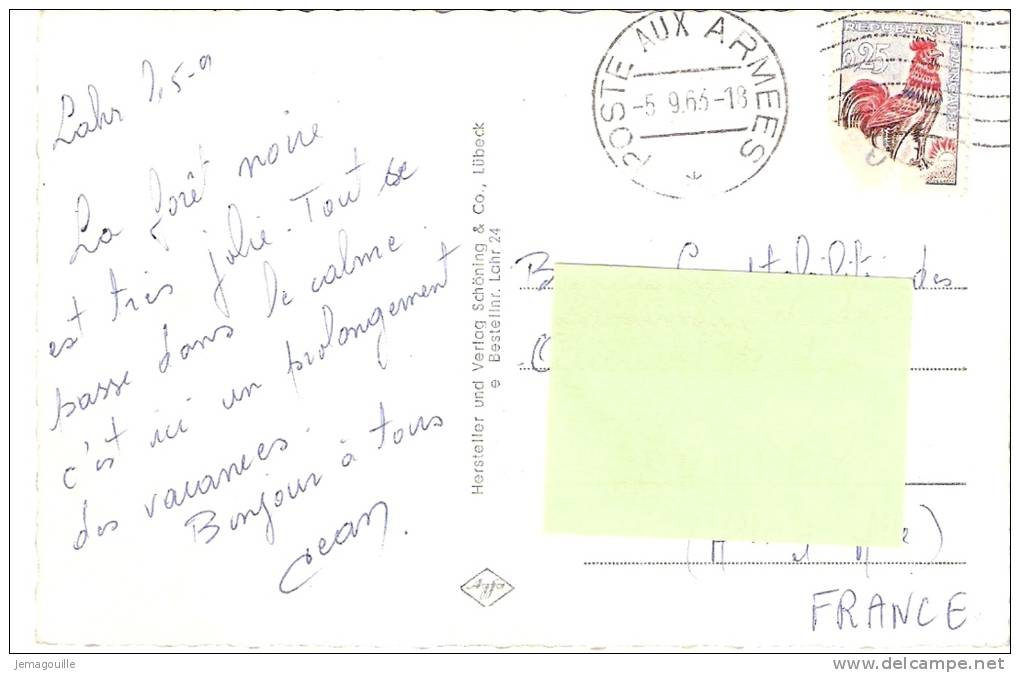 Lahr
La forêt noire
est très jolie. Tout se
passe dans le calme.
c'est ici un prolongement
des vacances.
Bonjour à tous
Jean.
Hersteller und Verlag Schöning & Co., Lübeck
e Bestellnr. Lahr 24
POSTE AUX ARMEES
-5 9.63-18
REPUBLIQUE FRANÇAISE
0,25
des
FRANCE
Jemagouille
www.delcampe.net